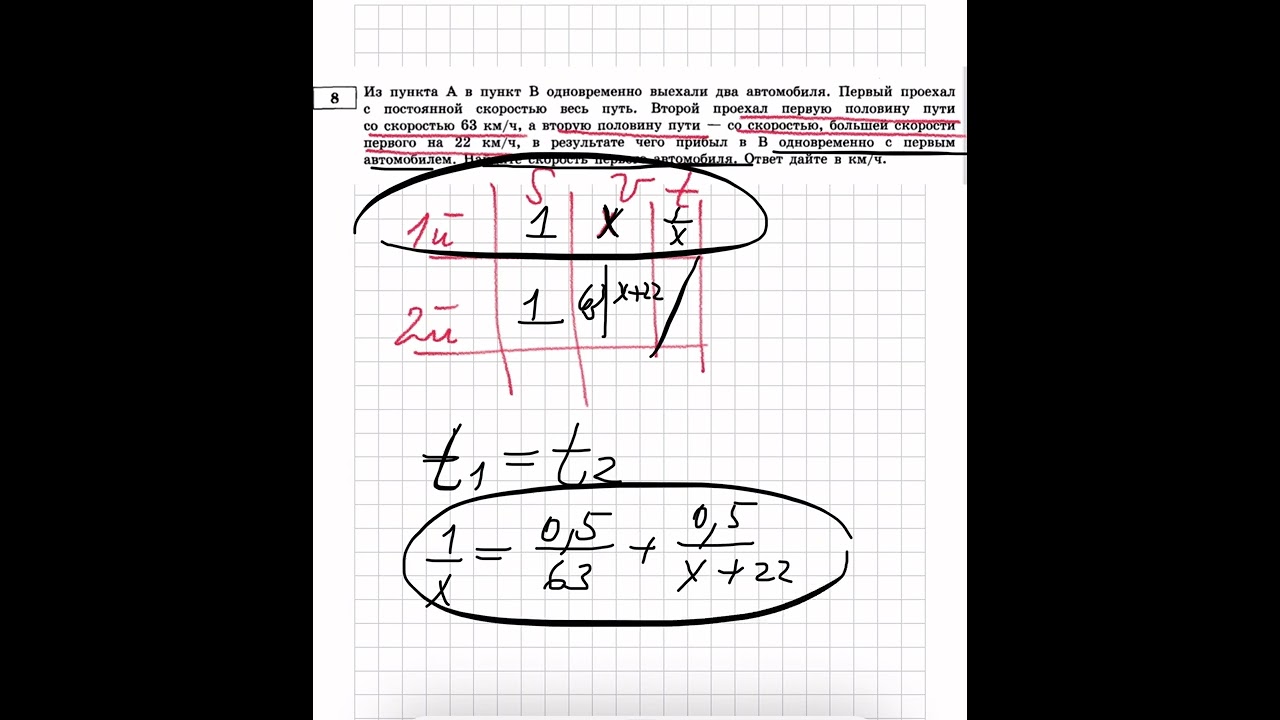 8
Из пункта А в пункт В одновременно выехали два автомобиля. Первый проехал
с постоянной скоростью весь путь. Второй проехал первую половину пути
со скоростью 63 км/ч, а вторую половину пути — со скоростью, большей скорости
первого на 22 км/ч, в результате чего прибыл в В одновременно с первым
автомобилем. Найдите скорость первого автомобиля. Ответ дайте в км/ч.
S v t
1й 1 x 1/x
2й 1 63 | x+22
t₁ = t₂
1/x = 0,5/63 + 0,5/(x+22)